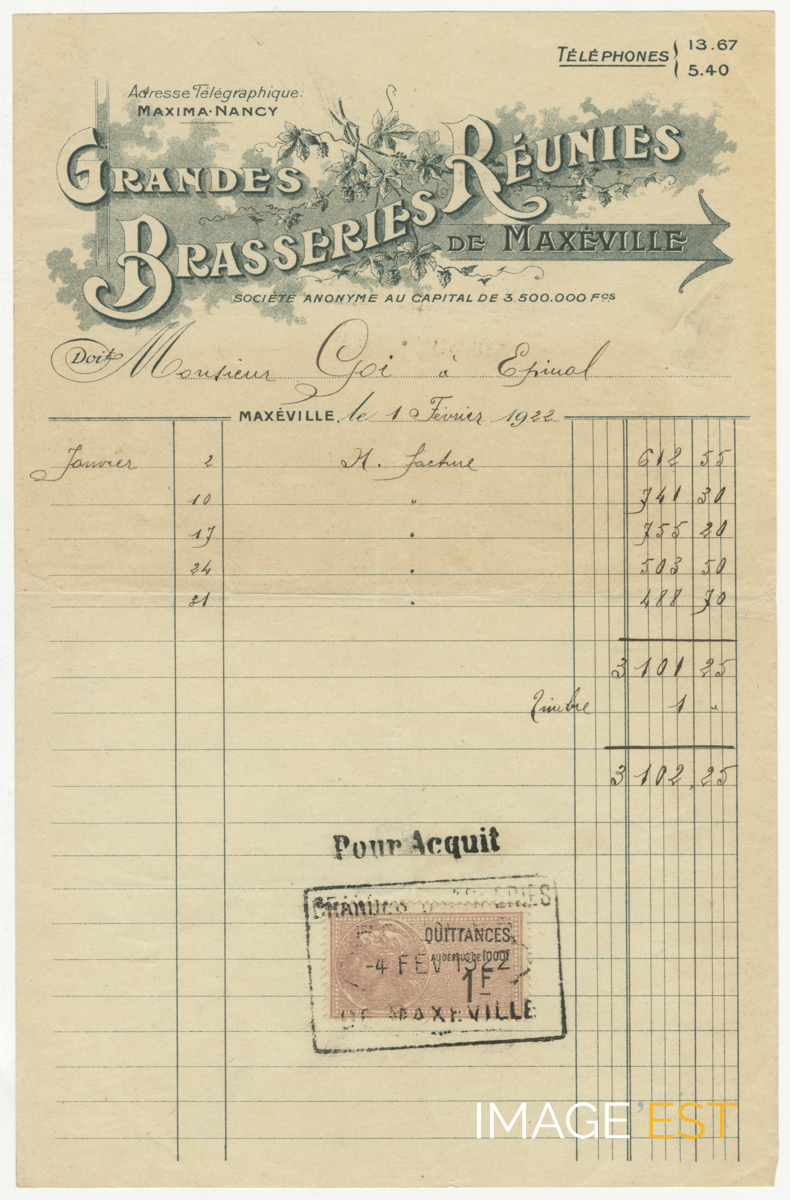 TÉLÉPHONES 13.67
5.40
Adresse Télégraphique:
MAXIMA-NANCY
GRANDES BRASSERIES RÉUNIES
DE MAXÉVILLE
SOCIÉTÉ ANONYME AU CAPITAL DE 3.500.000 Fcs
Doit Monsieur Goi à Epinal
MAXÉVILLE, le 1 Février 1922
Janvier 2 N. facture 612 55
10 " 741 30
17 " 755 20
24 " 503 50
31 " 488 70
3 101 25
Timbre 1 "
3 102,25
Pour Acquit
GRANDES BRASSERIES
QUITTANCES
AU DESSUS DE 1000F
-4 FEV 1922
1F
DE MAXEVILLE
IMAGE'EST